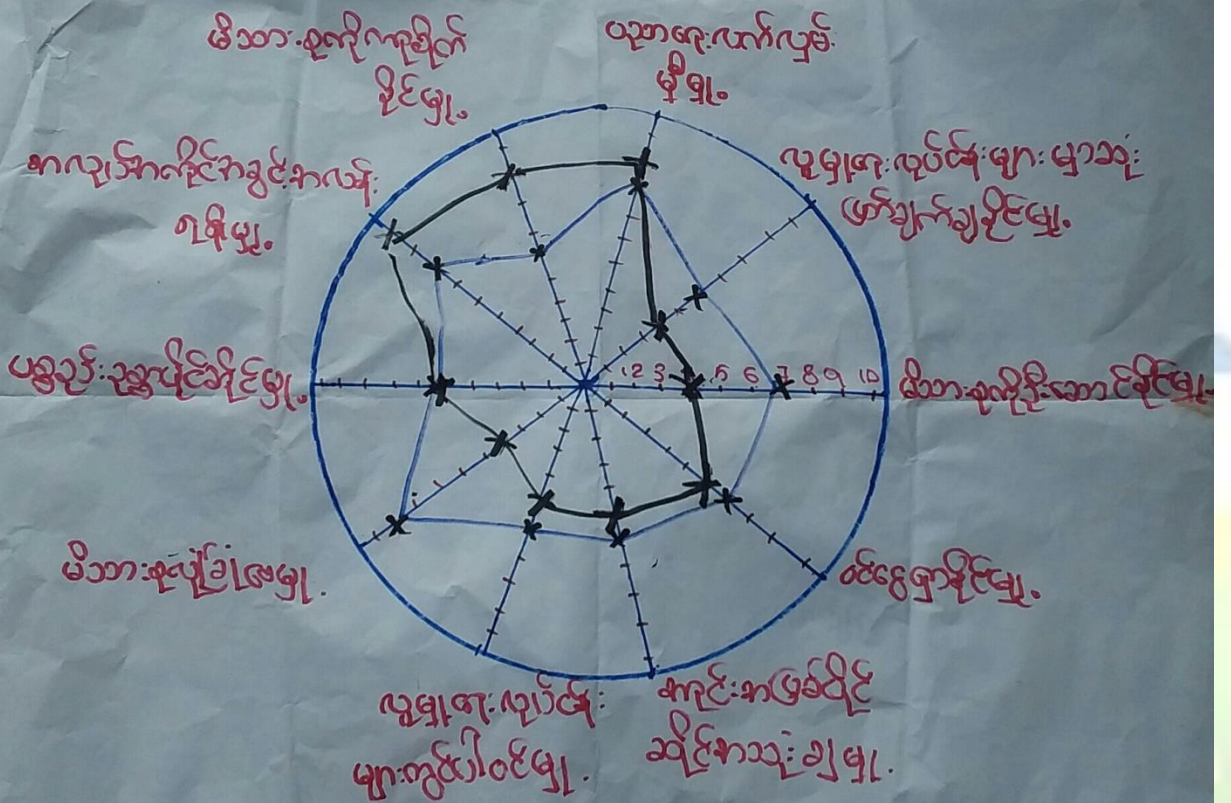 မိသားစုကိုကူစိုက်
နိုင်မှု။
ပညာရေးလက်လှမ်း
မှီမှု။
အလုပ်အကိုင်အခွင့်အလမ်း
ရရှိမှု။
လူမှုရေးလုပ်ငန်းများမှာဆုံး
ဖြတ်ချက်ချနိုင်မှု။
ပစ္စည်းဥစ္စာပိုင်ဆိုင်မှု။
1 2 3 5 6 7 8 9 10
မိသားစုကိုဦးဆောင်နိုင်မှု။
မိသားစုလုံခြုံဝေမှု။
ဝင်ငွေရှာနိုင်မှု။
လူမှုရေးလုပ်ငန်း
များတွင်ပါဝင်မှု။
ဆိုင်အသုံးချမှု။